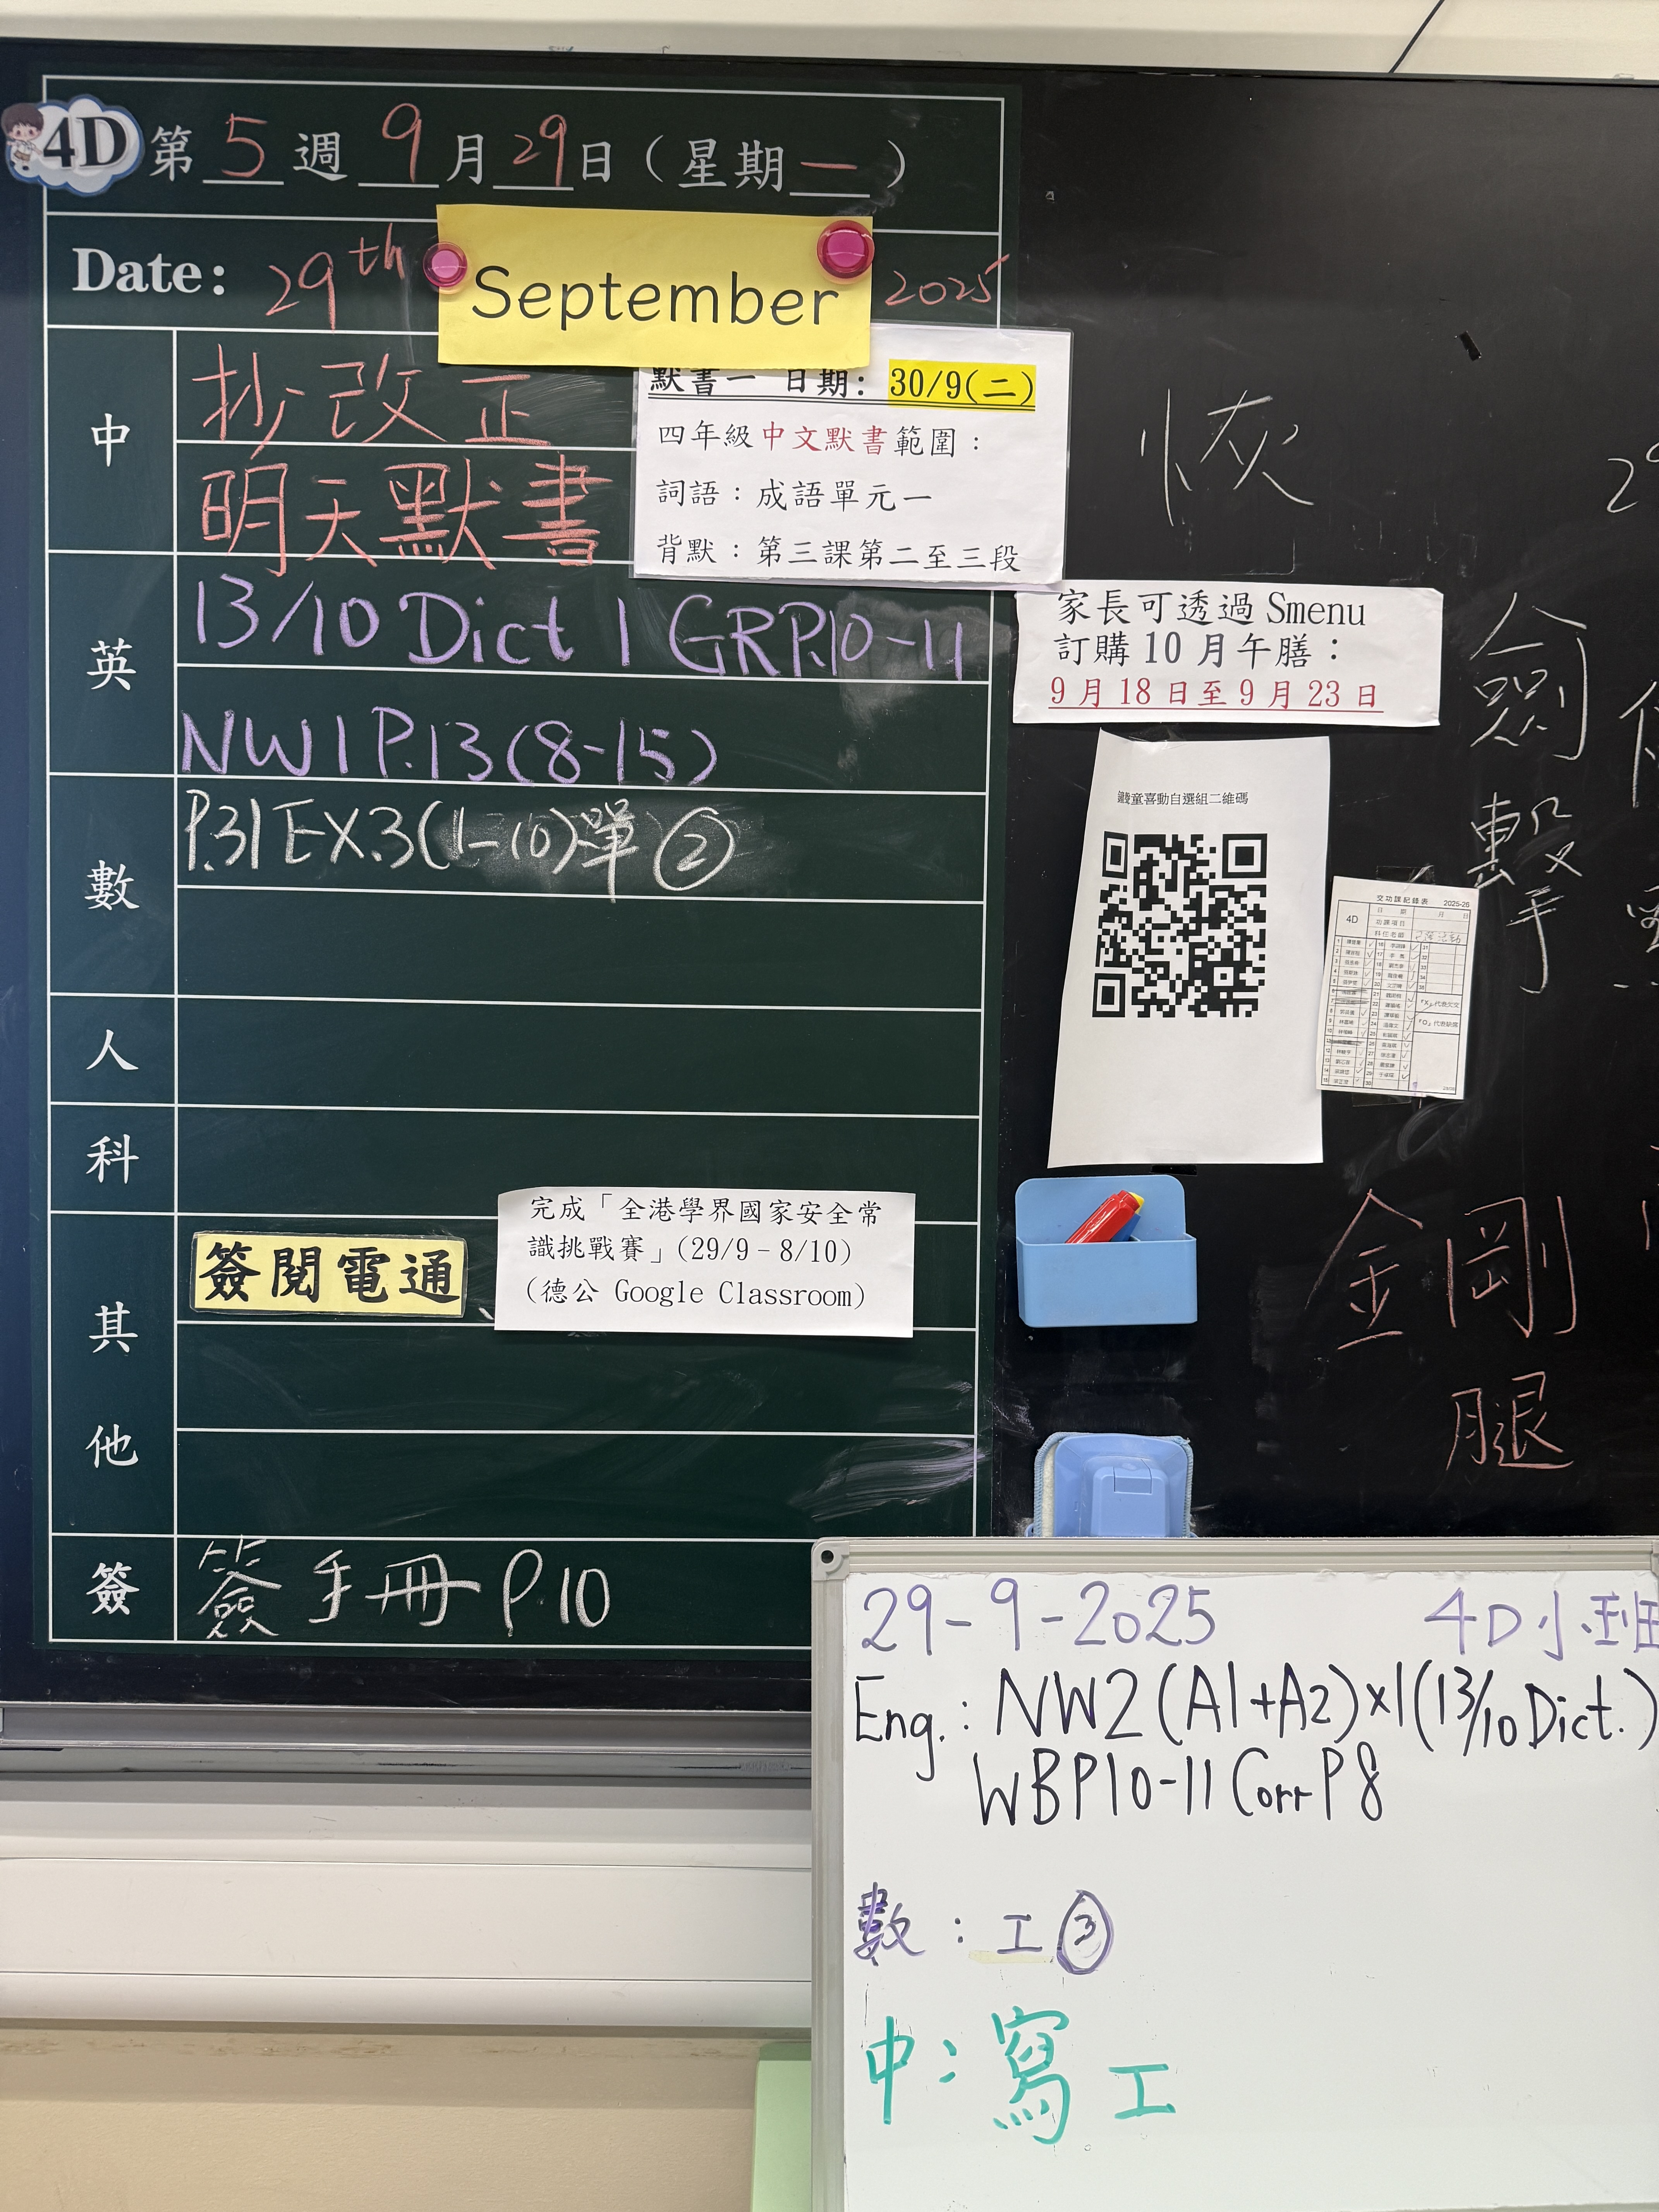 4D 第 5 週 9 月 29 日 (星期 一 )
Date: 29th September 2025
中
抄改正
明天默書
默書一 日期: 30/9(二)
四年級中文默書範圍：
詞語：成語單元一
背默：第三課第二至三段
英
13/10 Dict 1 GRP.10-11
NW1 P.13(8-15)
數
P.31 EX.3(1-10)單 ②
人
科
其他
簽閱電通、
完成「全港學界國家安全常
識挑戰賽」(29/9–8/10)
(德公 Google Classroom)
簽
簽手冊 P.10
家長可透過 Smenu
訂購 10 月午膳：
9 月 18 日至 9 月 23 日
童喜動自選組二維碼
交功課記錄表 2025-26
4D
日期 月 日
功課項目
科任老師
「X」代表欠交
「O」代表缺席
恢
劍
擊
金剛
腿
29-9-2025 4D小班
Eng.: NW2(A1+A2)x1(13/10 Dict.)
WBP10-11 Corr P8
數：工③
中：寫工